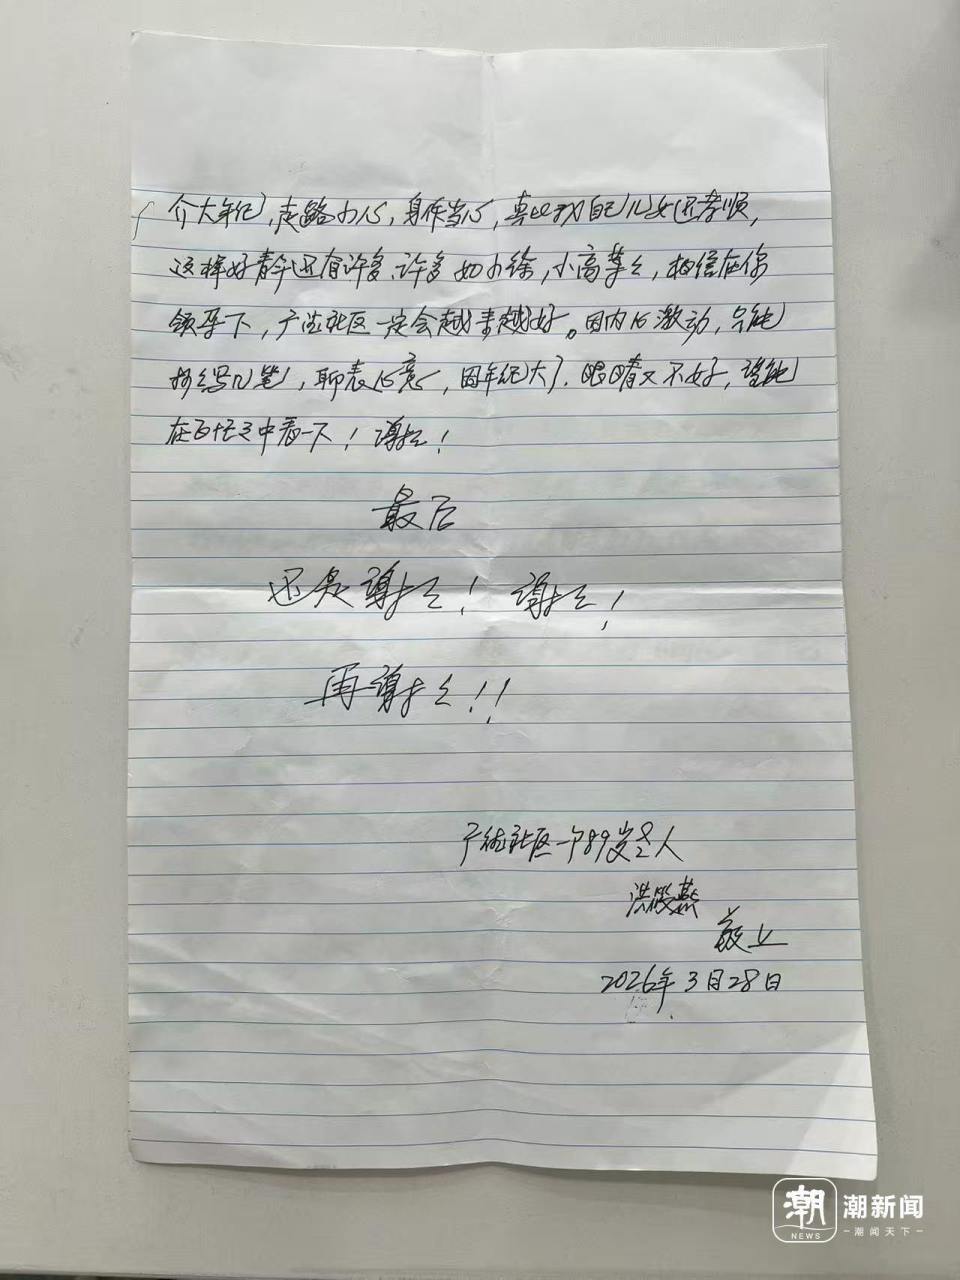 个大年纪,走路小心,身体当心,真比我自己儿女还孝顺,
这样好青年还有许多.许多如小徐,小高等等,相信在你
领导下,社区一定会越来越好。因内心激动,只能
写几笔,聊表心意,因年纪大了.眼睛又不好,请能
在百忙之中看一下!谢谢!
最后
还是谢谢!谢谢!
再谢谢!!
社区一个89岁老人
洪
敬上
2026年3月28日
潮 潮新闻
NEWS 潮闻天下